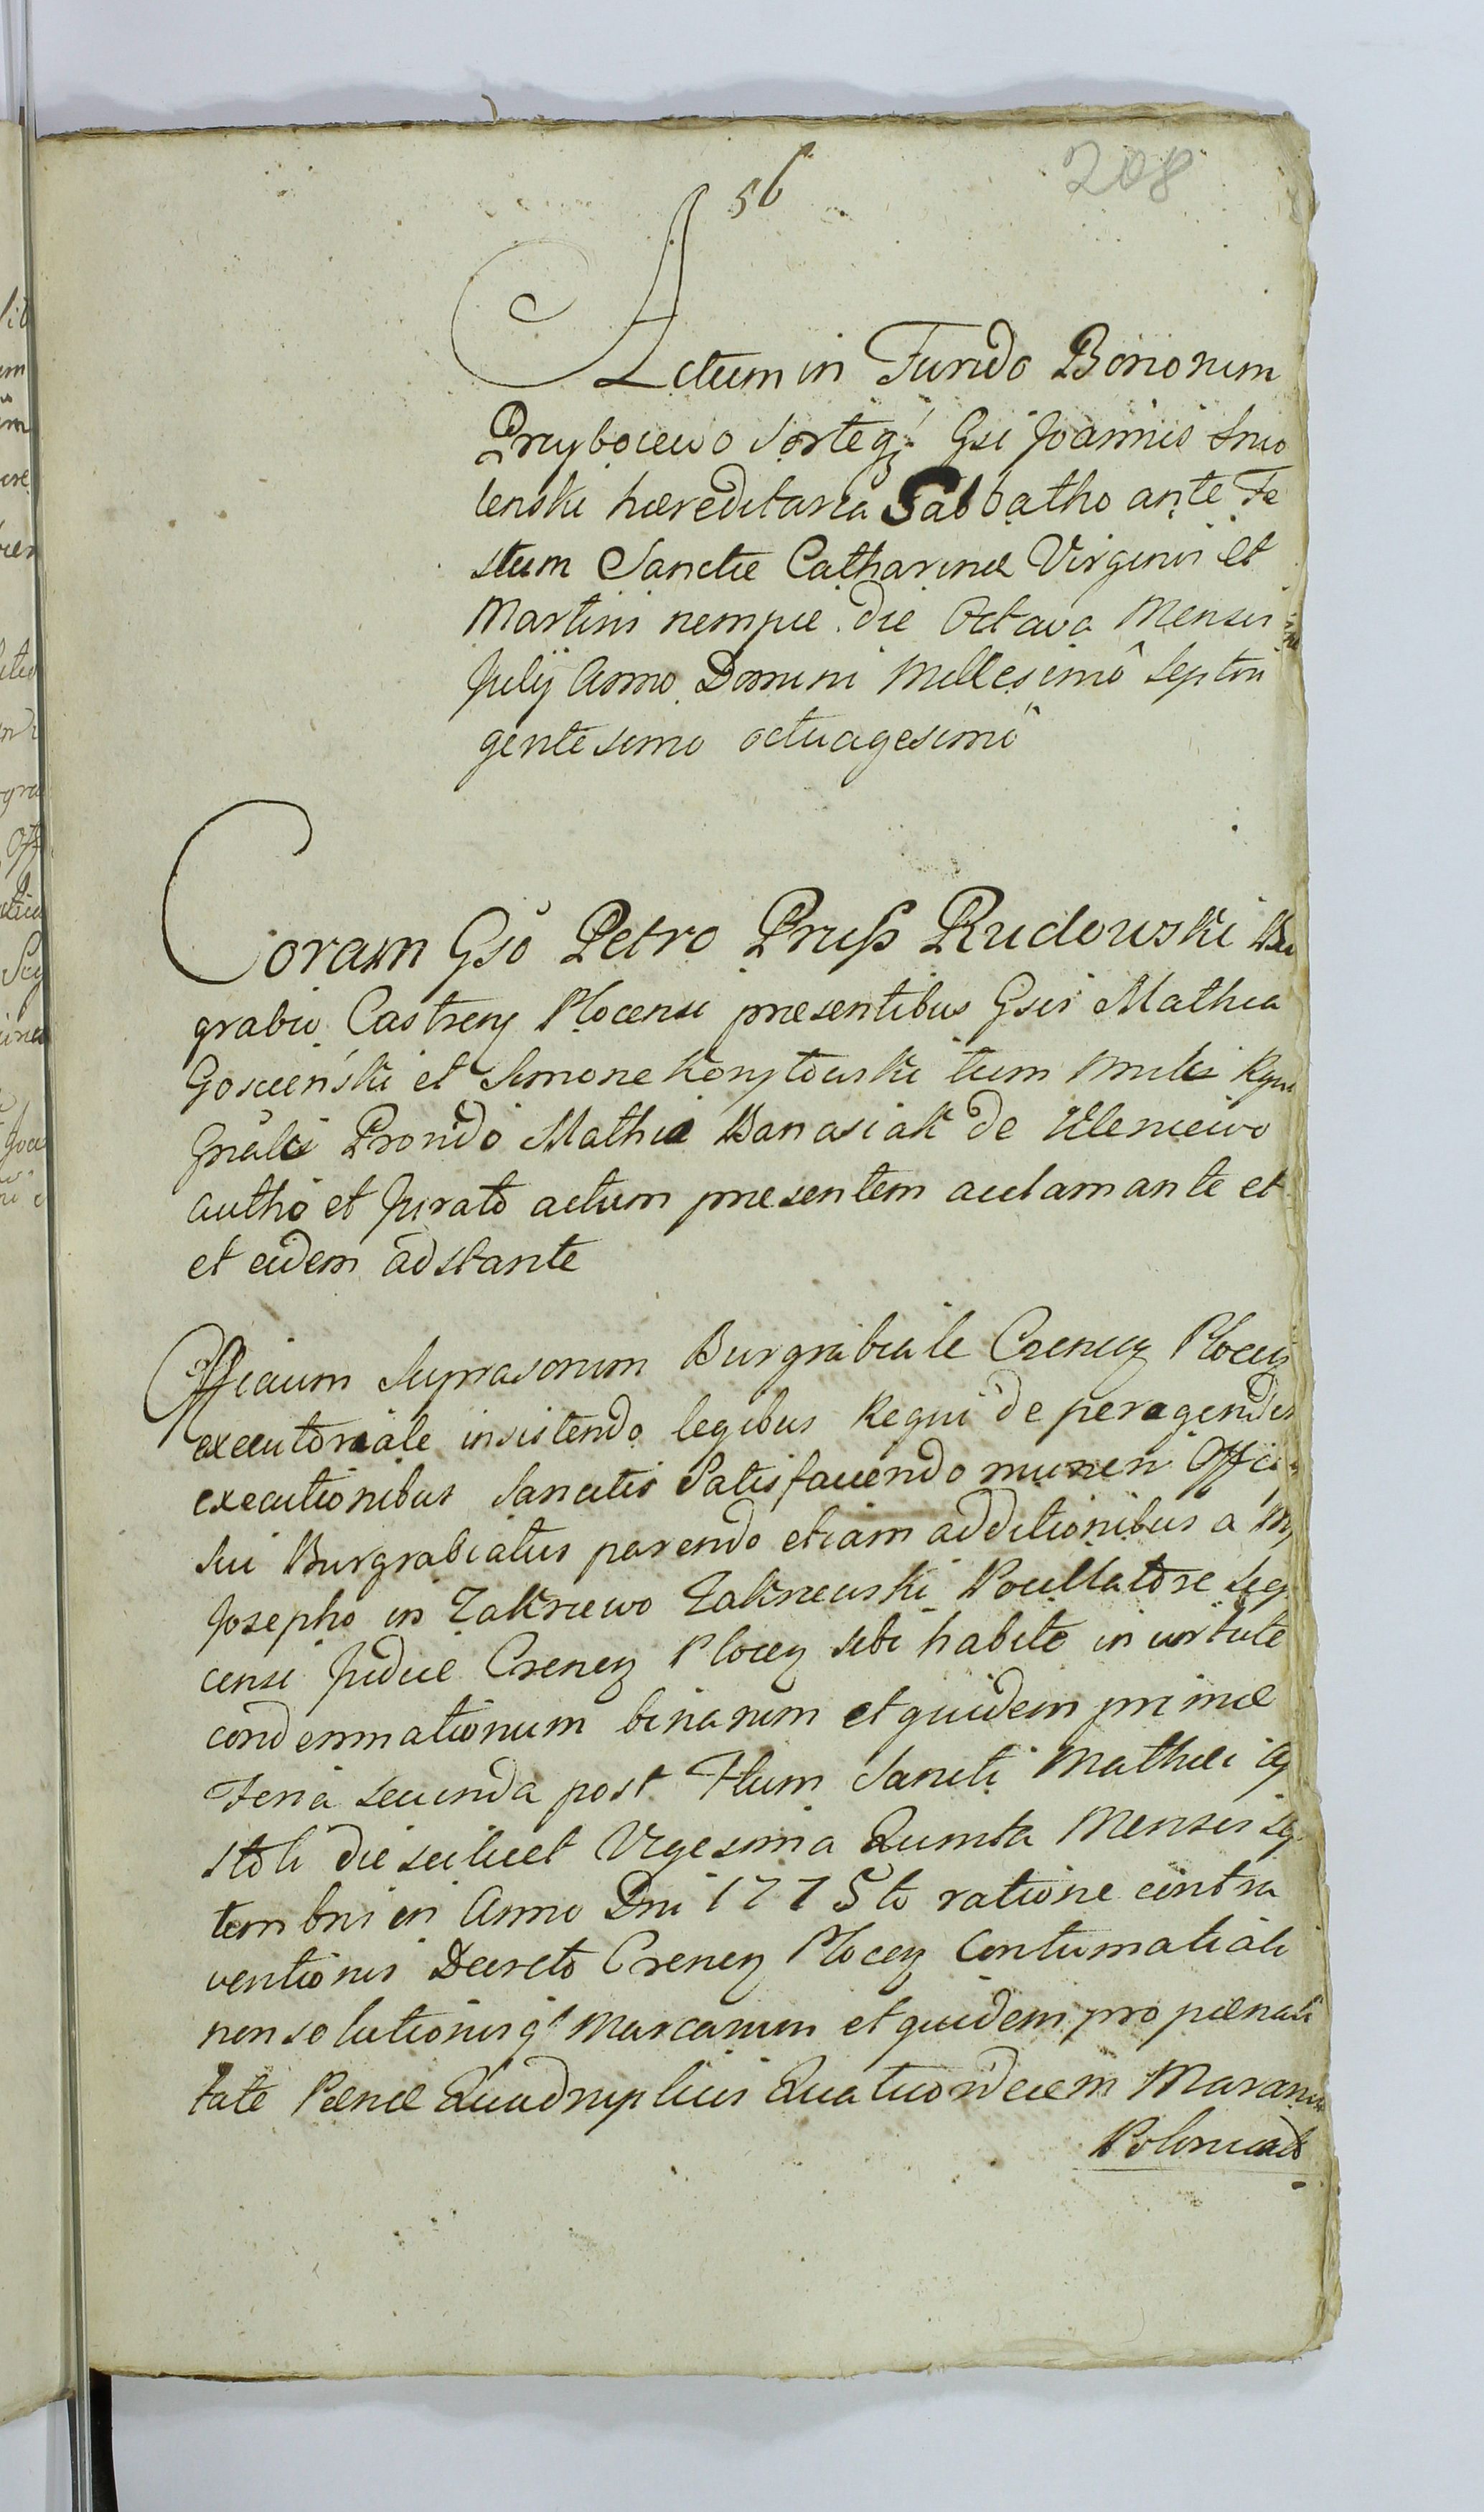 56
208
Actum in Fundo Bonorum
Przybojewo sorteq; Gsi Joannis Smo
lenski hæreditaria Sabbatho ante Fe
stum Sanctæ Catharinæ Virginis et
Martiris nempæ die Octava Mensis
Julÿ Anno Domini Millesimô septin
gentesimo octuagesimô
Coram Gsô Petro Pruss Rudowski Bur
grabio Castren Plocensi præsentibus Gsis Mathia
Goscieński et Simone tum Mnlis Rgni
Gnâli Prondo Mathia Banasiak de
autho et Jurato actum præsentem aclamante et
et eidem adstante
Officium Suprasonum Burgrabiale Crencz Plocen
executoriale insistendo legibus Regni de peragendis
executionibus sancitis Satisfaciendo muneri Officij
sui Burgrabiatus parendo etiam additionibus a M
Josepho in Zakrzewo Zakrzewski Pocillatore
censi Judice Crencz Plocen sibi habito in virtute
condemnationum binarum et quidem primæ
Feria secunda post Ftum Sancti Mathæi Ap
stoli die scilicet Vigesima Quinta Mensis Sep
tembris in Anno Dni 1775to ratione contra
ventionis Decreto Crencz Plocen Contumatiali
nonsolutionisq; Marcarum et quidem pro pænali
tate Pænæ Quadruplicis Quatuordecim Mararum
Polonicals